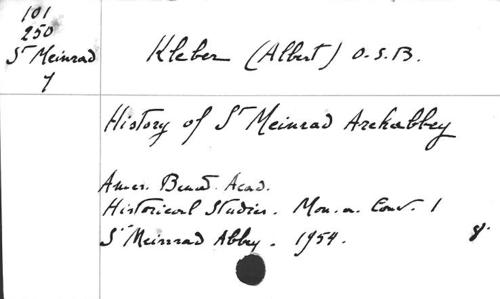 101
250
St Meinrad
7
Kleber (Albert) O.S.B.
History of St Meinrad Archabbey
Amer. Bened. Acad.
Historical Studies. Mon. a. Conv. 1
St Meinrad Abbey. 1954. 8.